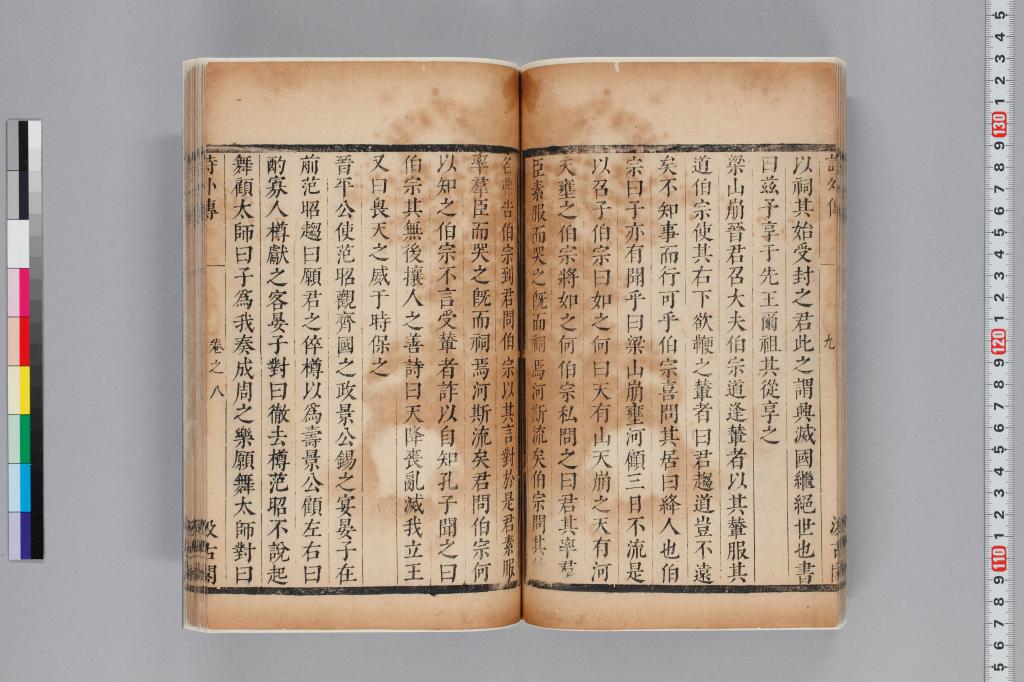 以祠其始受封之君此之謂興滅國繼絕世也書
曰兹予享于先王爾祖其從享之
梁山崩晉君召大夫伯宗道逢輦者以其輦服其
道伯宗使其右下欲鞭之輦者曰君趨道豈不遠
矣不知事而行可乎伯宗喜問其居曰絳人也伯
宗曰子亦有聞乎曰梁山崩壅河顧三日不流是
以召子伯宗曰如之何曰天有山天崩之天有河
天壅之伯宗將如之何伯宗私問之曰君其率羣
臣素服而哭之旣而祠焉河斯流矣伯宗問其
九
汲古閣
告伯宗到君問伯宗以其言對於是君素服
率羣臣而哭之旣而祠焉河斯流矣君問伯宗何
以知之伯宗不言受輦者詐以自知孔子聞之曰
伯宗其無後攘人之善詩曰天降喪亂滅我立王
又曰畏天之威于時保之
晉平公使范昭觀齊國之政景公錫之宴晏子在
前范昭趨曰願君之倅樽以爲壽景公顧左右曰
酌寡人樽獻之客晏子對曰徹去樽范昭不說起
舞顧太師曰子爲我奏成周之樂願舞太師對曰
詩外傳
卷之八
汲古閣
130
120
110